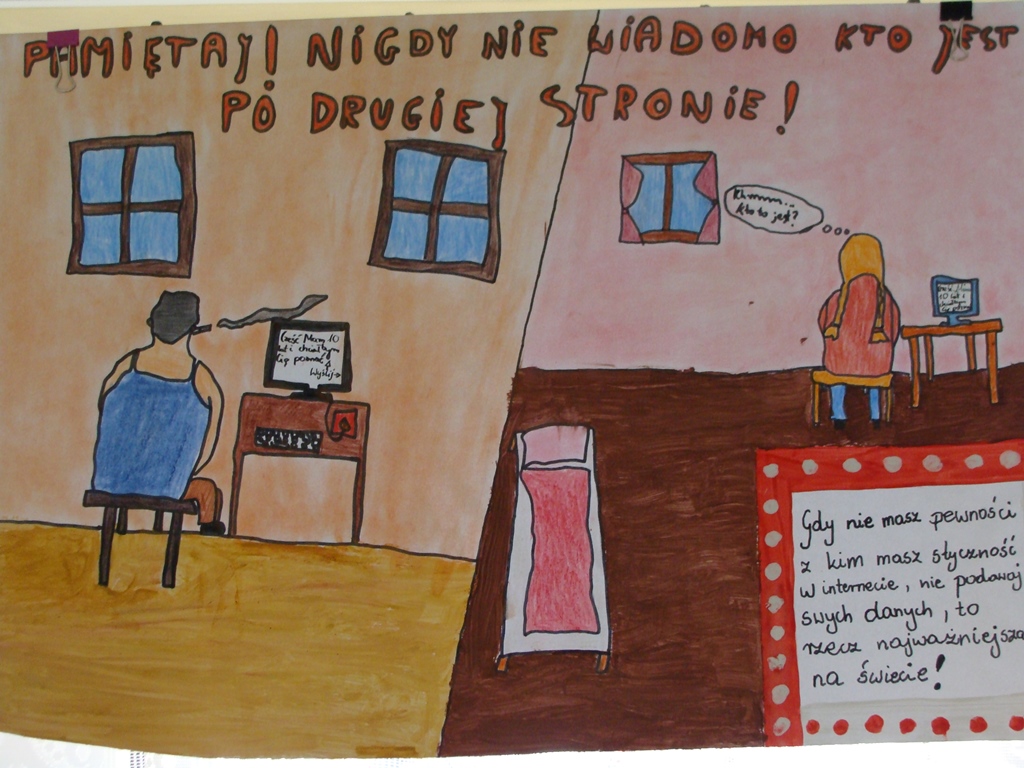 PAMIĘTAJ! NIGDY NIE WIADOMO KTO JEST
PO DRUGIEJ STRONIE!
Khmmm...
Kto to jest?
Cześć Mam 10
lat i chciałbym
Cię poznać
Wyślij→
Cześć Mam
10 lat i
chciałbym
Gdy nie masz pewności
z kim masz styczność
w internecie, nie podawaj
swych danych, to
rzecz najważniejsza
na świecie!